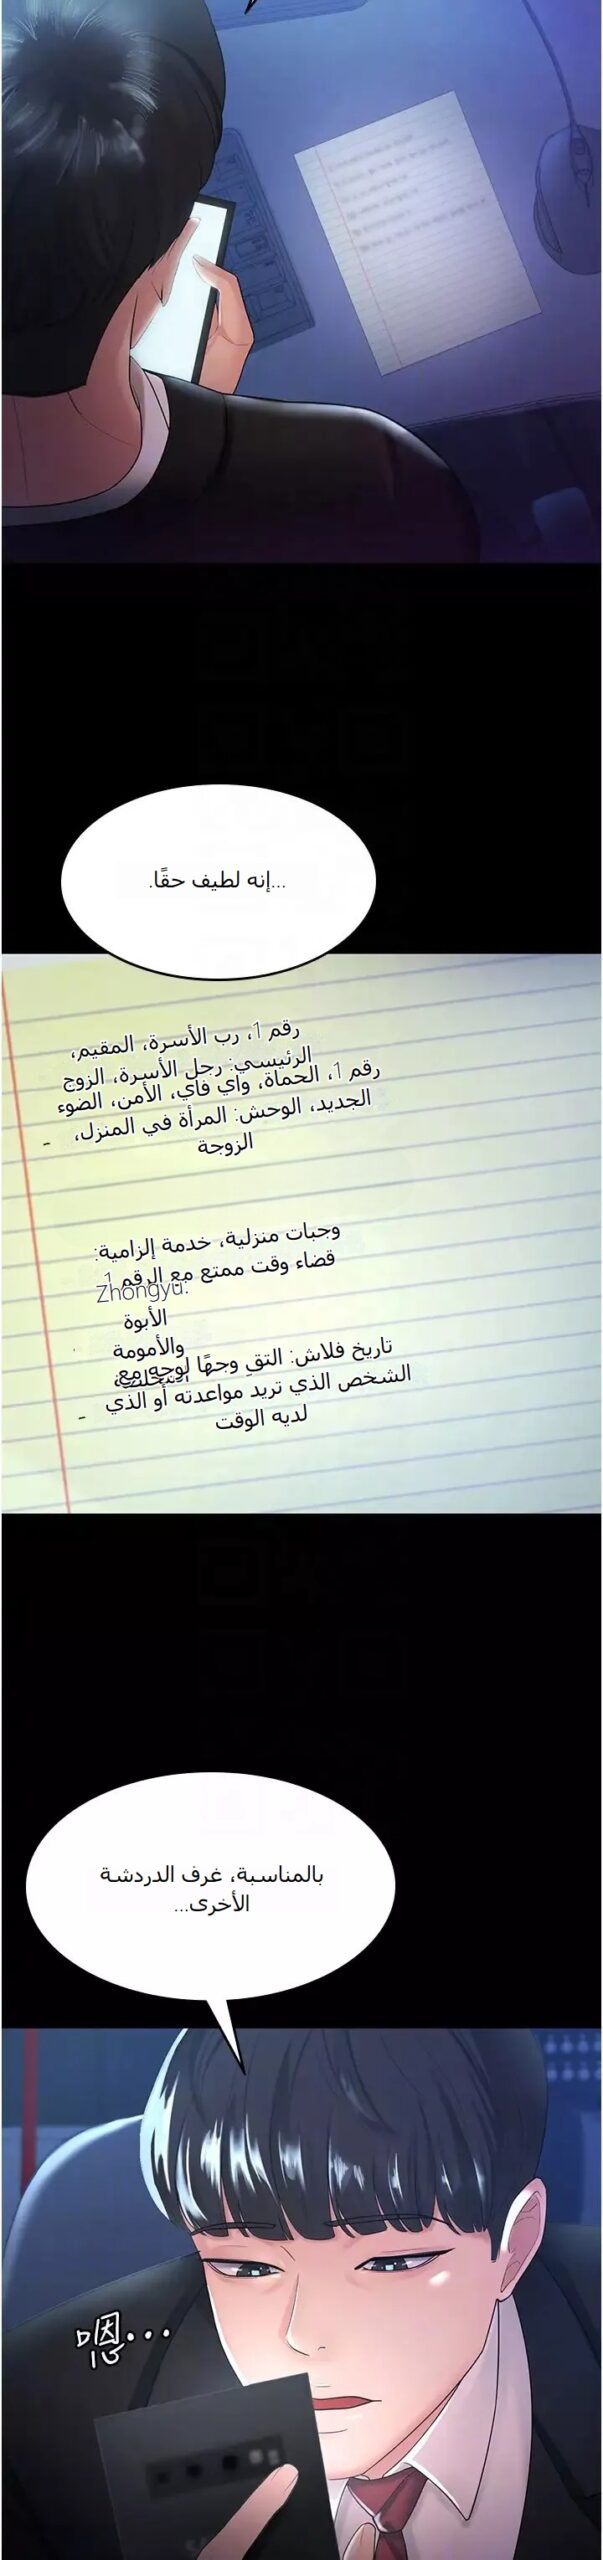 ...إنه لطيف حقًا.
رقم 1، رب الأسرة، المقيم،
الرئيسي: رجل الأسرة، الزوج
رقم 1، الحماة، واي فاي، الأمن، الضوء
الجديد، الوحش: المرأة في المنزل،
الزوجة
وجبات منزلية، خدمة إلزامية:
قضاء وقت ممتع مع الرقم 1
Zhongyu:
الأبوة
والأمومة
تاريخ فلاش: التقِ وجهًا لوجه مع
الشخص الذي تريد مواعدته أو الذي
لديه الوقت
بالمناسبة، غرف الدردشة
الأخرى...
嗯...